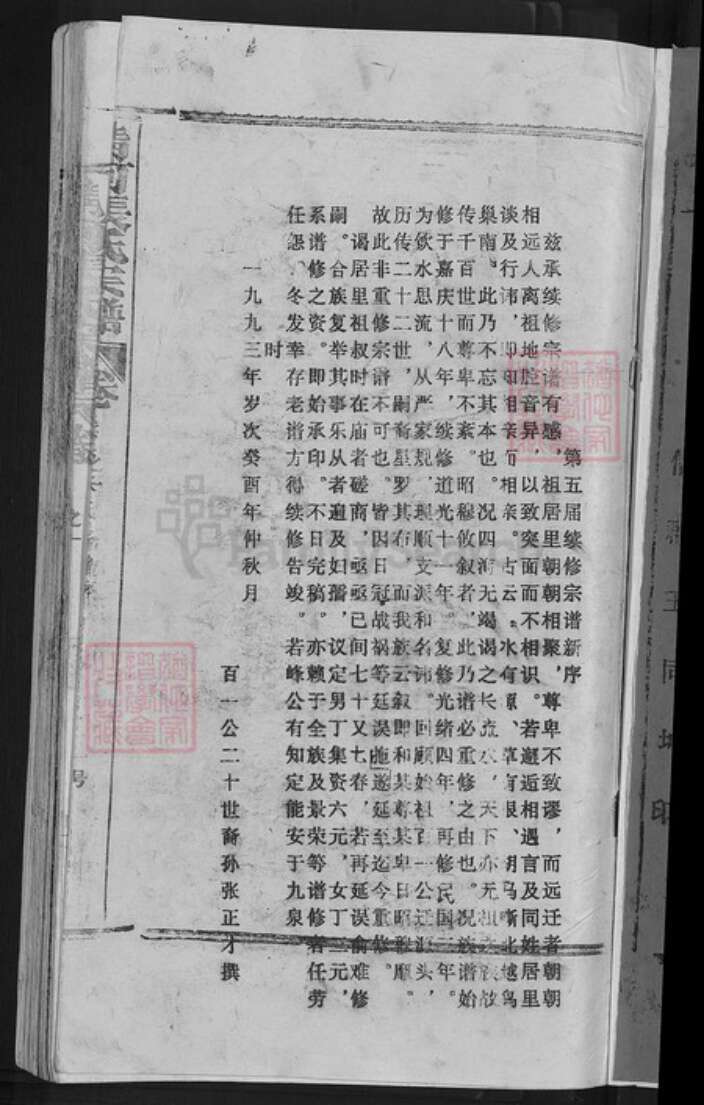 第五届续修宗谱新序
兹承续修宗谱有感，祖居里朝朝相聚，尊卑不致谬，而远迁者朝朝
相远人离祖地腔音异，以致突面而不相识。若邂逅相遇言及同姓居里
谈及行讳，即和相亲而相亲。古云。水有源、草有根、胡马嘶北越鸟
巢南。此乃不忘其本也。况四海无竭谒之长流水，天下亦无祖故
传千百世而尊卑不紊。昭穆攸叙者，此乃谱必重修之由也。况族谱始
修于嘉庆十八年，续修道光十一年。复修光绪四年，再修民国三年。
为饮水思流，从严家规，理顺支派和名讳。回顾始祖百一公迁源头，
历传二十二世，嗣裔星罗其布，而我族云叙即和其尊其卑日昭穆顺。
故此非重修宗谱不可也。皆因日冠战祸等延误拖遂延至迄今重修。
谒居里祖叔时在庙者磋商，亟亟已间七十又七春，若再延误俞难修
嗣。合族复举其事乐从者遍及妇孺，议定男丁集资六元，女丁三元，
系谱修之资。即始承印。不日完稿。亦赖于全族及景荣等谱修者任劳
任怨。冬发幸存老谱方得续修告竣。若峰公有知定能安于九泉
时
一九九三年岁次癸酉年仲秋月
百一公二十世裔孙张正才撰